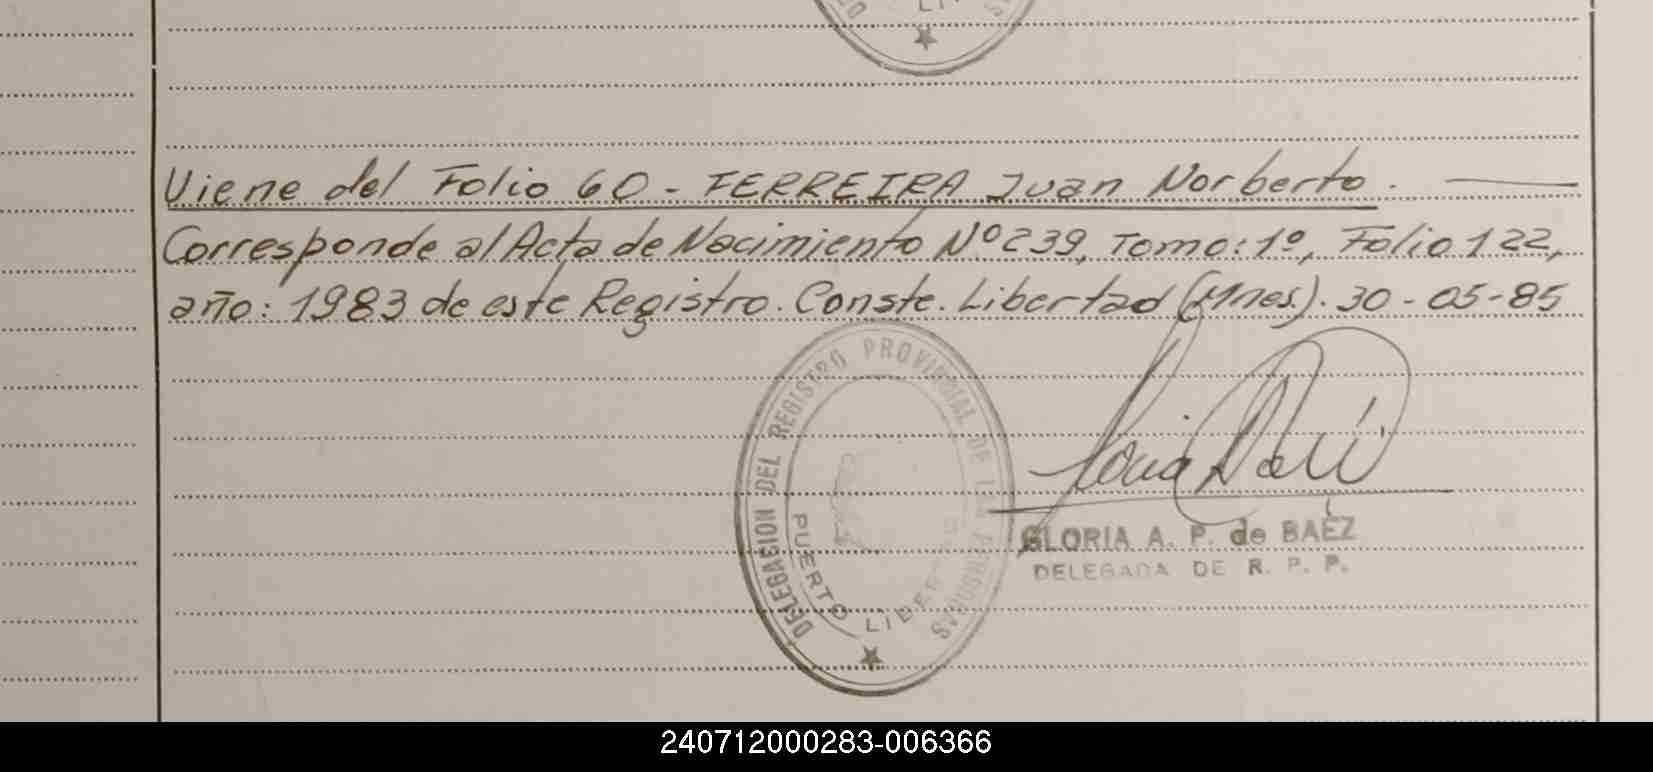 Viene del Folio 60 - FERREIRA Juan Norberto.
Corresponde al Acta de Nacimiento Nº 239, Tomo: 1º, Folio 122,
año: 1983 de este Registro. Conste. Libertad (Mnes.). 30-05-85
DELEGACION DEL REGISTRO PROVINCIAL DE LAS PERSONAS
PUERTO LIBERTAD
GLORIA A. P. de BAEZ
DELEGADA DE R. P. P.
240712000283-006366